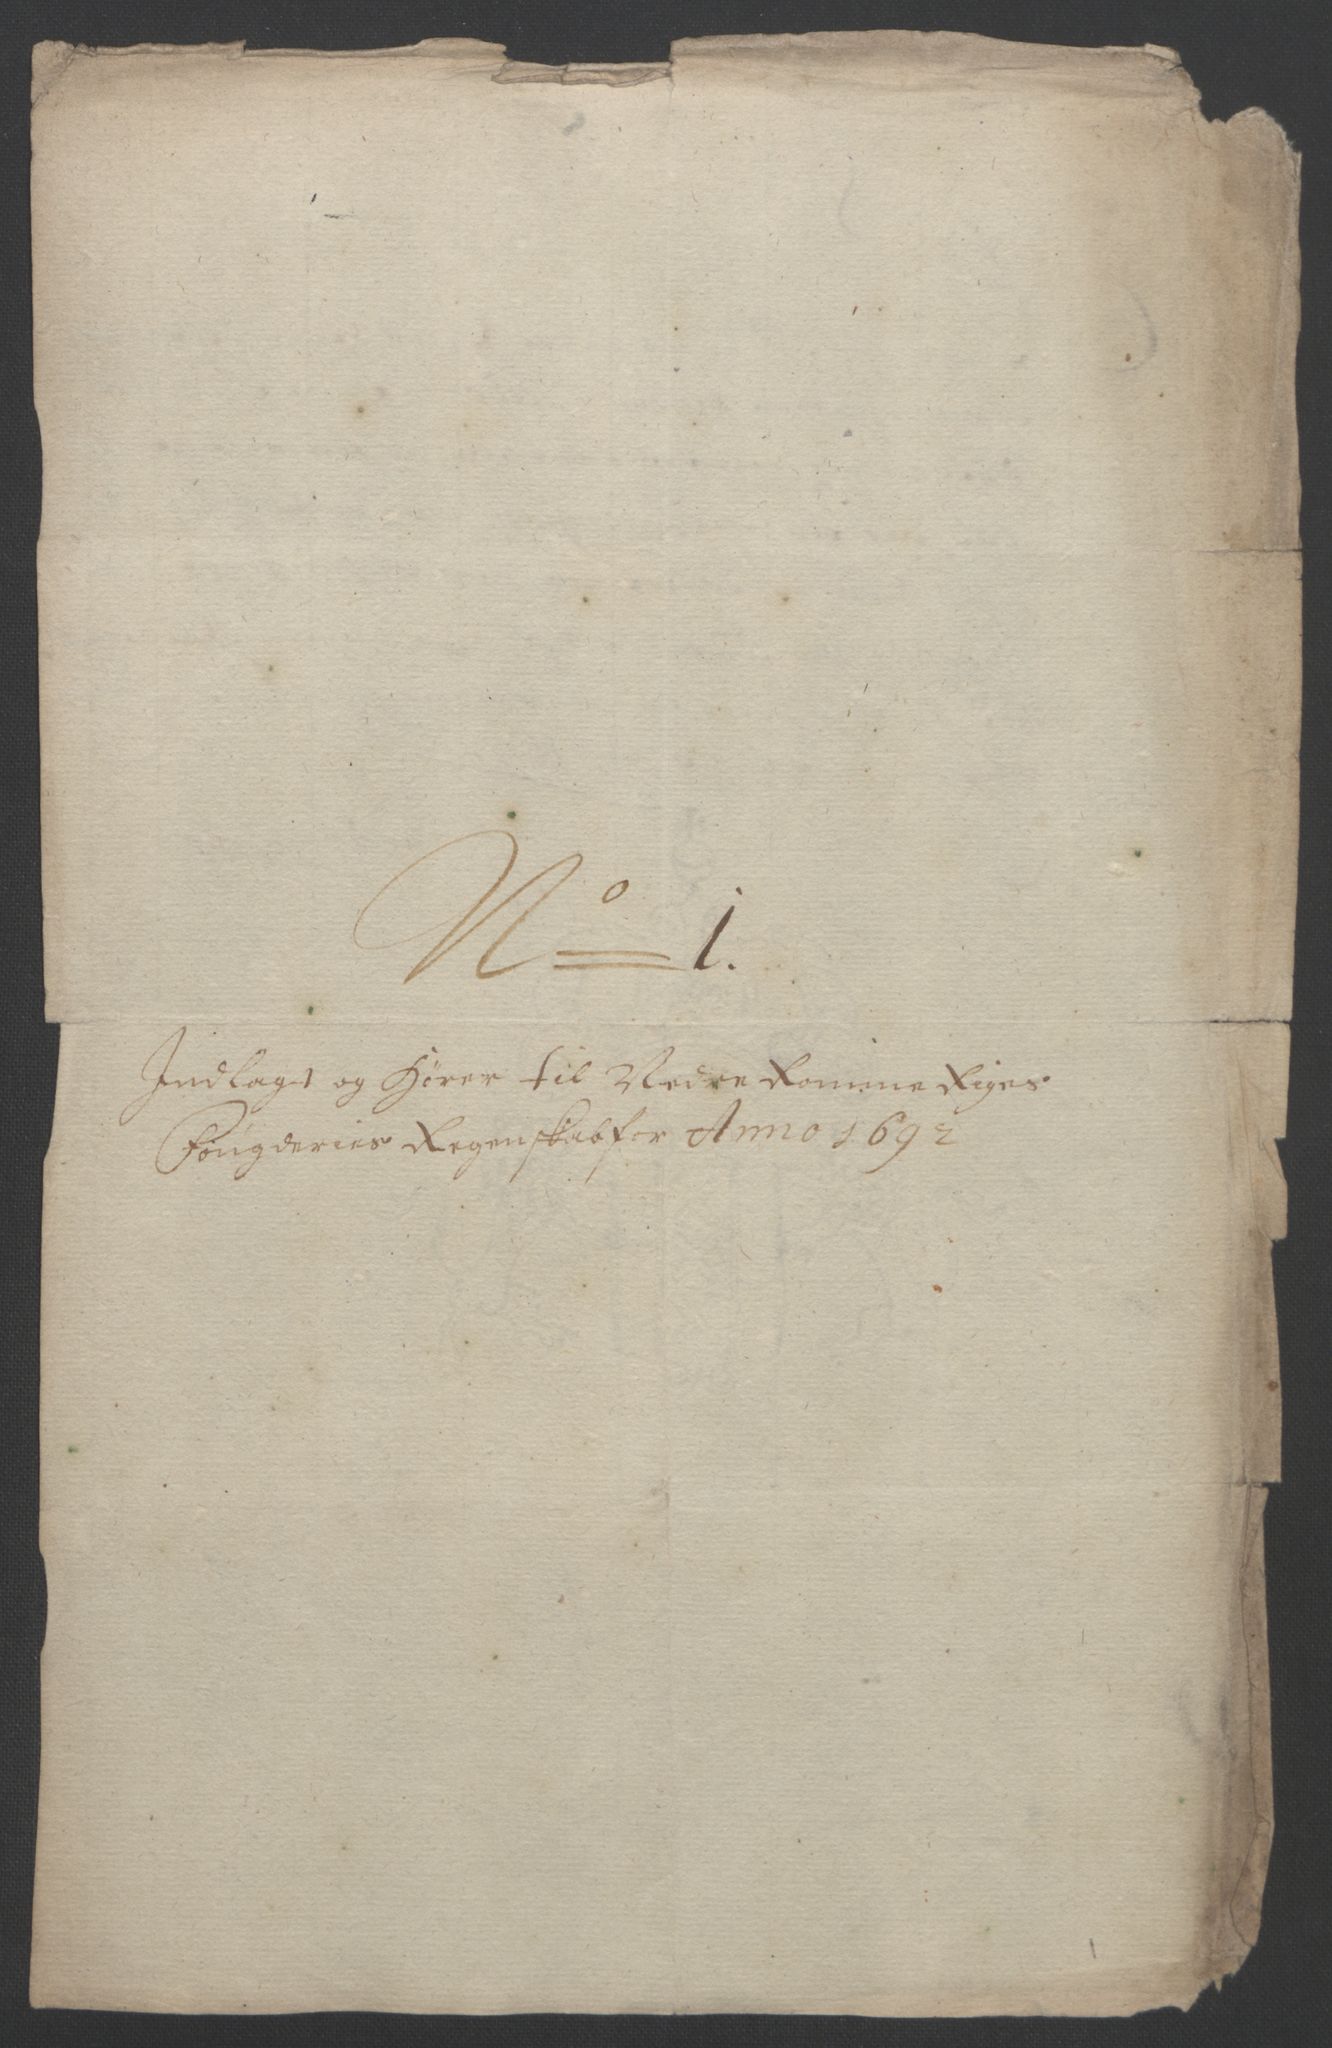 No 1.
Indlagt og hører til Nedre Romme Riges
Fougderies Regenskab for Anno 1692